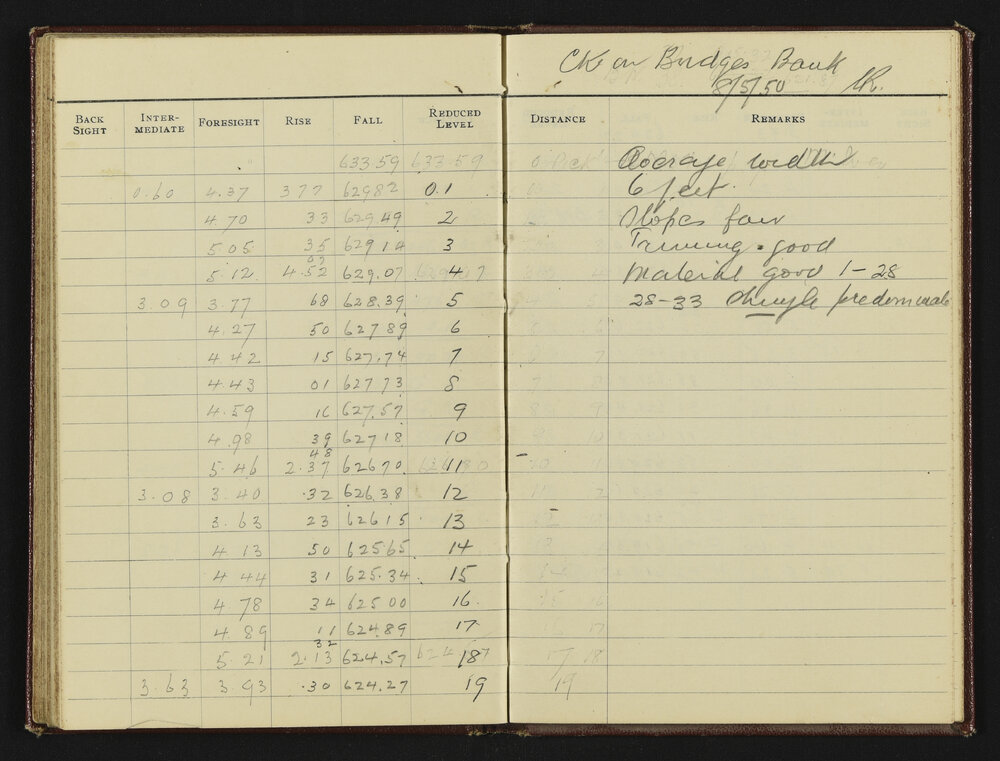 CK on Bridges Bank
8/5/50
BACK SIGHT INTER-MEDIATE FORESIGHT RISE FALL REDUCED LEVEL DISTANCE REMARKS
633.59 633.59 0 Average width
0.60 4.37 377 629.82 0.1 6 feet.
4.70 33 629.49 2 Slopes fair
5.05 35 629.14 3 Trimming good
07
5.12 4.52 629.07 4 Material good 1-28
3.09 3.77 68 628.39 5 28-33 shingle
4.27 50 627.89 6
4.42 15 627.74 7
4.43 01 627.73 8
4.59 16 627.57 9
4.98 39 627.18 10
48
5.46 2.37 626.70 11
3.08 3.40 .32 626.38 12
3.63 23 626.15 13
4.13 50 625.65 14
4.44 31 625.34 15
4.78 34 625.00 16
4.89 11 624.89 17
32
5.21 2.13 624.57 18 17 18
3.63 3.93 .30 624.27 19 19